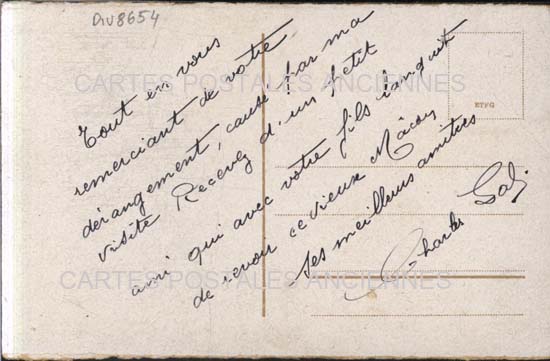 Div8654
Tout en vous
remerciant de votre
dérangement, causé par ma
visite Recevez d'un petit
ami qui avec votre fils languit
de revoir ce vieux Mâcon
ses meilleurs amitiés
Charles
ETFG
CARTES POSTALES ANCIENNES
CARTES POSTALES ANCIENNES